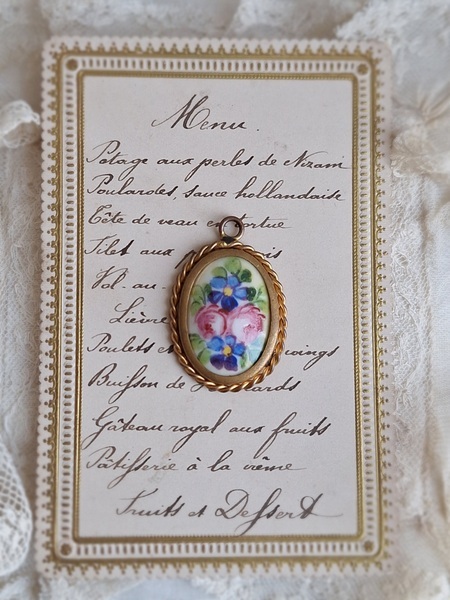 Menu.
Potage aux perles de Nizam
Poulardes, sauce hollandaise
Tête de veau en tortue
Filet aux
Vol-au-
Lièvre
Poulets
Buisson de
Gâteau royal aux fruits
Pâtisserie à la crème
Fruits et Dessert